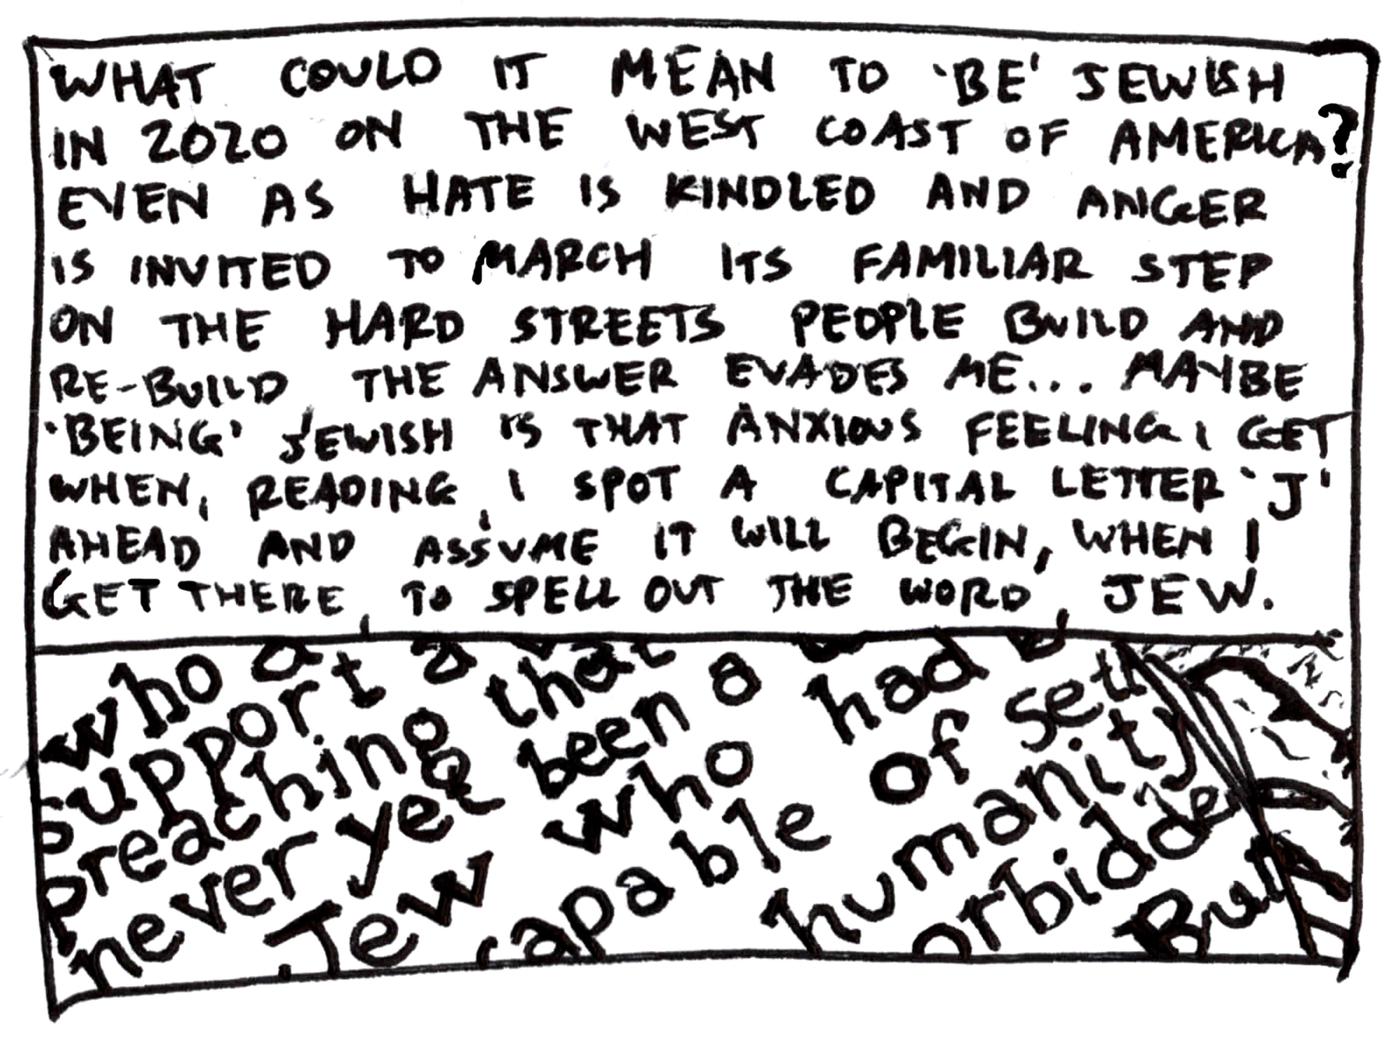 WHAT COULD IT MEAN TO 'BE' JEWISH
IN 2020 ON THE WEST COAST OF AMERICA?
EVEN AS HATE IS KINDLED AND ANGER
IS INVITED TO MARCH ITS FAMILIAR STEP
ON THE HARD STREETS PEOPLE BUILD AND
RE-BUILD THE ANSWER EVADES ME... MAYBE
'BEING' JEWISH IS THAT ANXIOUS FEELING I GET
WHEN, READING, I SPOT A CAPITAL LETTER 'J'
AHEAD AND ASSUME IT WILL BEGIN, WHEN I
GET THERE, TO SPELL OUT THE WORD, JEW.
who a
support a
preaching that
never yet been a had
Jew who of seth
capable humanity
orbidde
But